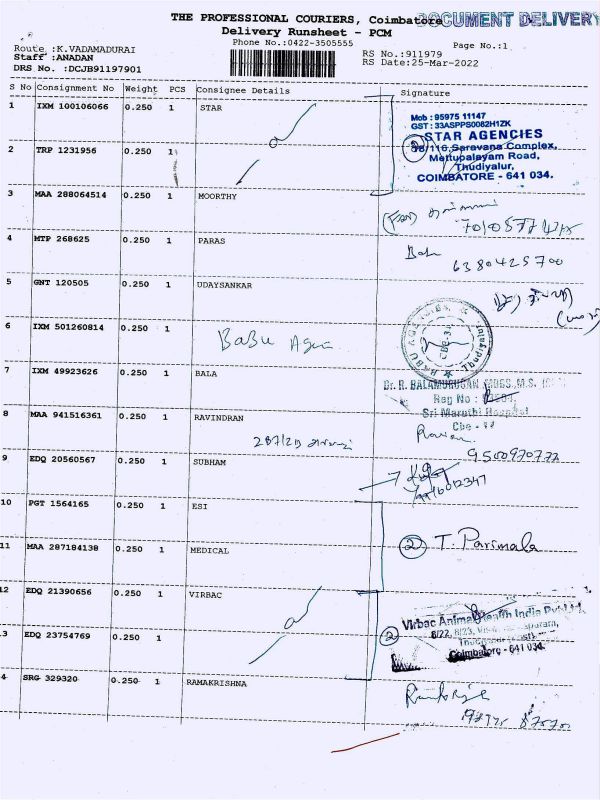 THE PROFESSIONAL COURIERS, Coimbatore
DOCUMENT DELIVERY
Delivery Runsheet - PCM
Phone No.:0422-3505555
Page No.:1
Route :K.VADAMADURAI
RS No.:911979
Staff :ANADAN
RS Date:25-Mar-2022
DRS No. :DCJB91197901
S No Consignment No Weight PCS Consignee Details Signature
1 IXM 100106066 0.250 1 STAR
Mob : 95975 11147
GST : 33ASPPS0082H1ZK
STAR AGENCIES
Saravana Complex,
Mettupalayam Road,
Thudiyalur,
COIMBATORE - 641 034.
2 TRP 1231956 0.250 1
2
3 MAA 288064514 0.250 1 MOORTHY
4 MTP 268625 0.250 1 PARAS
6380425700
5 GNT 120505 0.250 1 UDAYSANKAR
6 IXM 501260814 0.250 1
BABU
7 IXM 49923626 0.250 1 BALA
Dr. R. BALAMURUGAN MBBS.,M.S.
Reg No :
Sri Maruthi Hospital
Cbe -
8 MAA 941516361 0.250 1 RAVINDRAN
9 EDQ 20560567 0.250 1 SUBHAM
10 PGT 1564165 0.250 1 ESI
2 T. Parimala
11 MAA 287184138 0.250 1 MEDICAL
12 EDQ 21390656 0.250 1 VIRBAC
2
Virbac Animal Health India Pvt Ltd
Coimbatore - 641 034.
3 EDQ 23754769 0.250 1
4 SRG 329320 0.250 1 RAMAKRISHNA